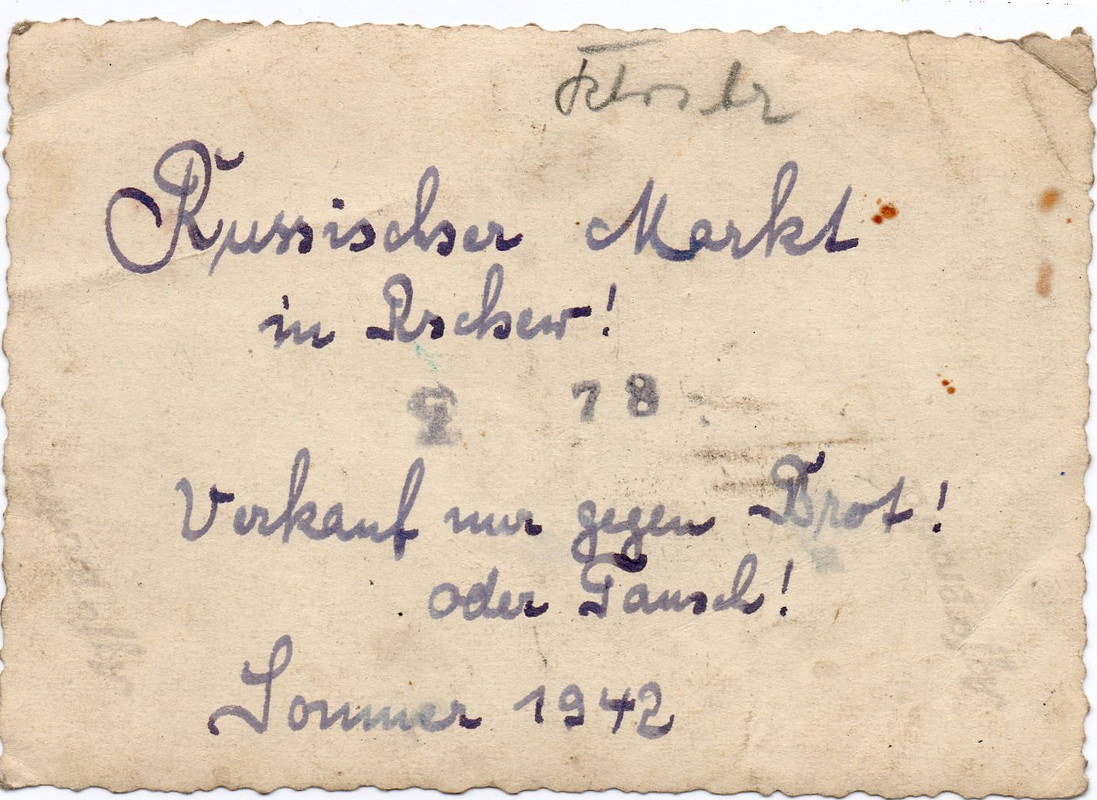 Russischer Markt
in Rschew!
2 78
Verkauf nur gegen Brot!
oder Tausch!
Sommer 1942